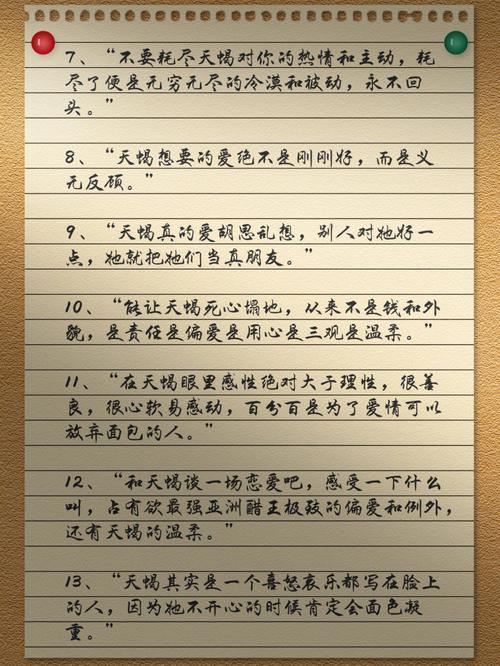 7、“不要耗尽天蝎对你的热情和主动，耗
尽了便是无穷无尽的冷漠和被动，永不回
头。”
8、“天蝎想要的爱绝不是刚刚好，而是义
无反顾。”
9、“天蝎真的爱胡思乱想，别人对她好一
点，她就把她们当真朋友。”
10、“能让天蝎死心塌地，从来不是钱和外
貌，是责任是偏爱是用心是三观是温柔。”
11、“在天蝎眼里感性绝对大于理性，很善
良，很心软易感动，百分百是为了爱情可以
放弃面包的人。”
12、“和天蝎谈一场恋爱吧，感受一下什么
叫，占有欲最强亚洲醋王极致的偏爱和例外，
还有天蝎的温柔。”
13、“天蝎其实是一个喜怒哀乐都写在脸上
的人，因为她不开心的时候肯定会面色凝
重。”